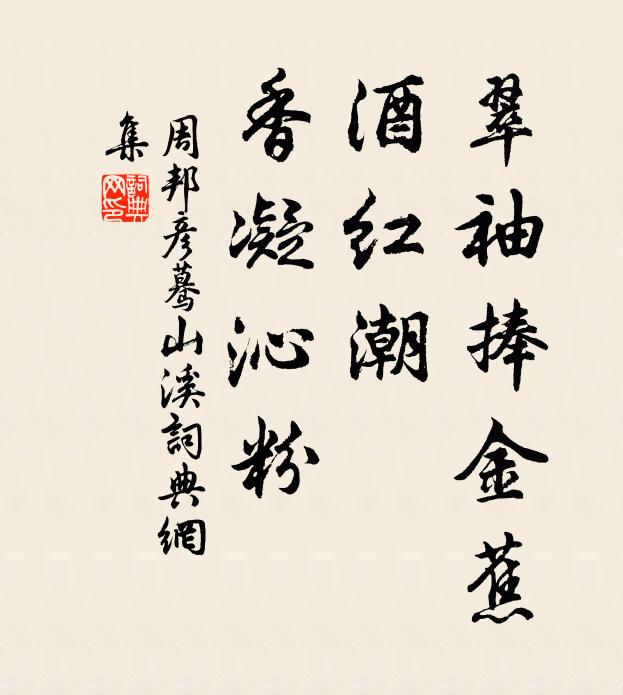 翠袖捧金蕉
酒红潮
香凝沁粉
周邦彦蓦山溪詞典網
集
詞典
网印